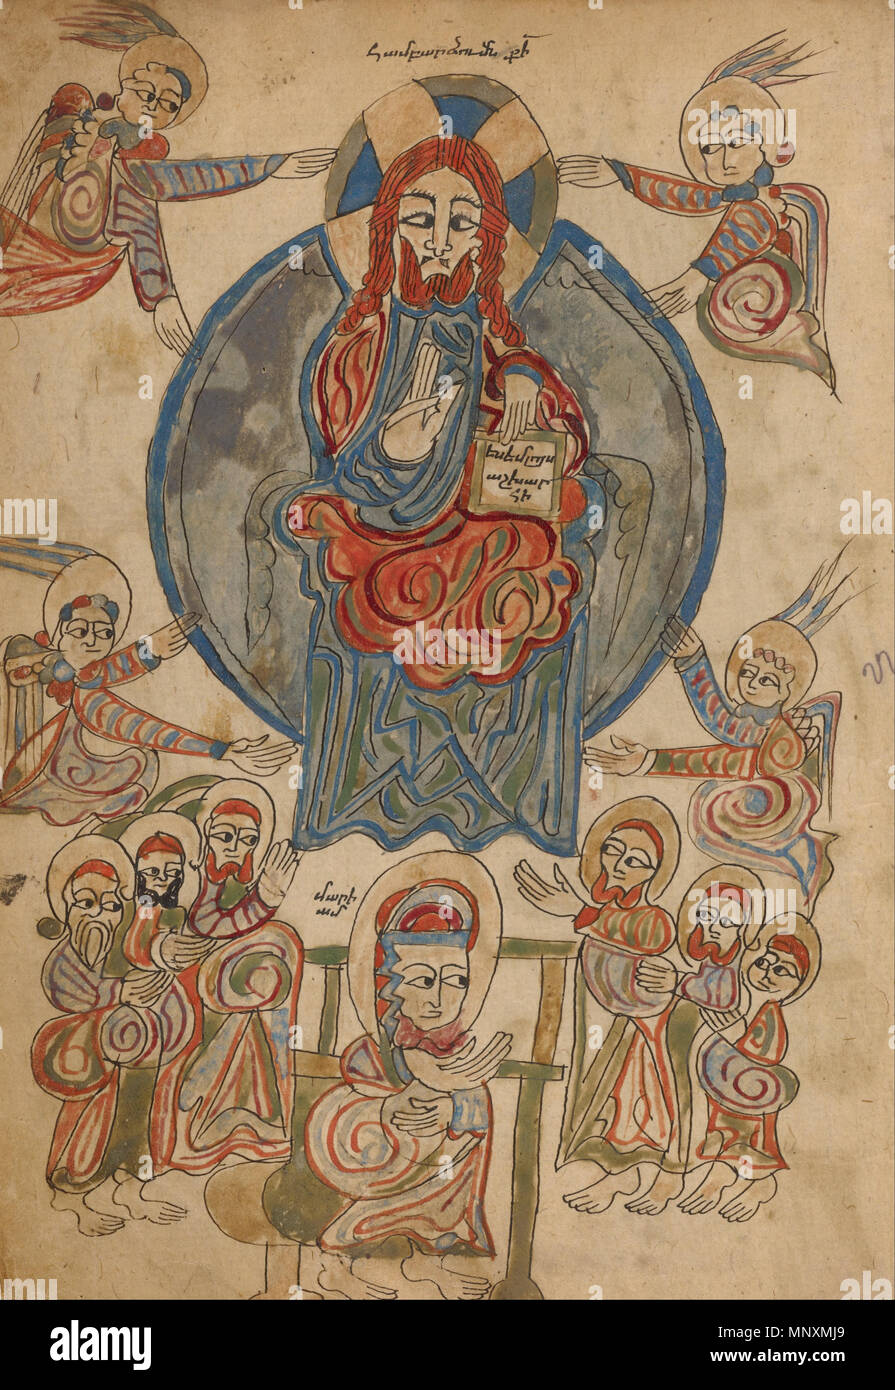 Համբարձումն քի
եսեմլոյս
աշխար
հի
մարի
ամ
alamy
Image ID: MNXMJ9
www.alamy.com